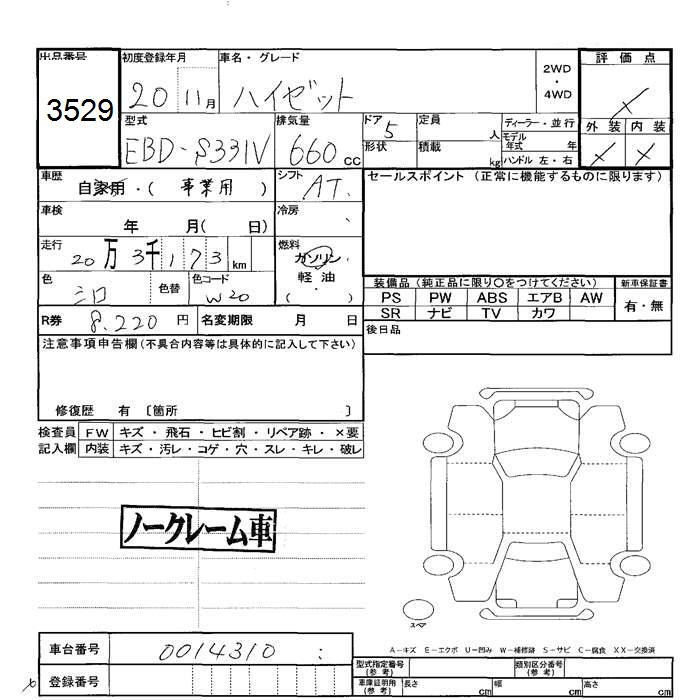 出品番号 初度登録年月 車名・グレード 2WD・4WD 評価点
3529 20 11月 ハイゼット X
型式 排気量 ドア 5 定員 人 ディーラー・並行 外装 内装
EBD-S331V 660 cc 形状 積載 kg モデル年式 年 ハンドル 左・右 X X
車歴 自家用・(事業用) シフト AT. セールスポイント (正常に機能するものに限ります)
車検 年 月( 日) 冷房
走行 20万3千173km 燃料 ガソリン・軽油・( )
色 シロ 色替 色コード W20
装備品 (純正品に限り○をつけてください) 新車保証書
PS PW ABS エアB AW 有・無
SR ナビ TV カワ
R券 8.220円 名変期限 月 日 後日品
注意事項申告欄 (不具合内容等は具体的に記入して下さい)
修復歴 有 〔箇所 〕
検査員 FW キズ・飛石・ヒビ割・リペア跡・×要
記入欄 内装 キズ・汚レ・コゲ・穴・スレ・キレ・破レ
ノークレーム車
スペア
車台番号 0014310 :
A-キズ E-エクボ U-凹み W-補修跡 S-サビ C-腐食 XX-交換済
登録番号
型式指定番号(参考) 類別区分番号(参考)
車庫証明用(参考) 長さ cm 幅 cm 高さ cm